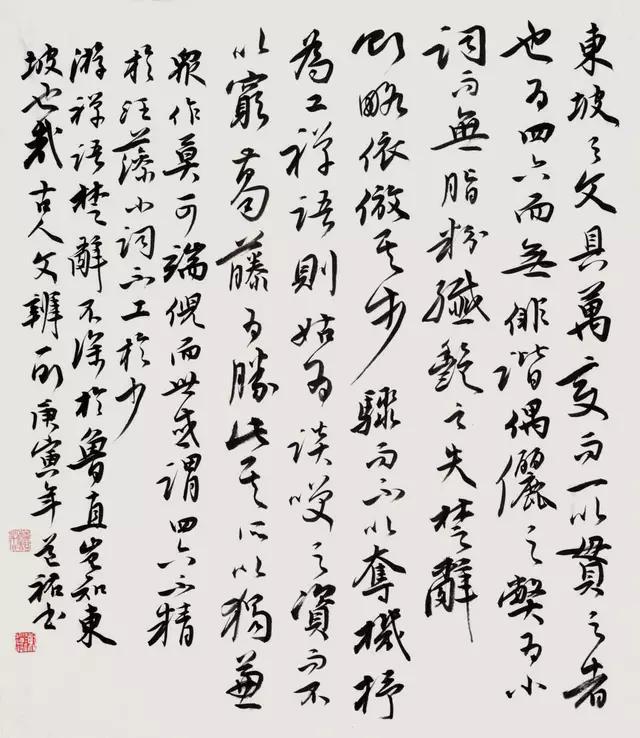 東坡之文具萬變而一以貫之者
也為四六而無俳諧偶儷之弊為小
詞而無脂粉纖艷之失楚辭
則略依倣其步驟而不以奪機杼
為工禪語則姑為談笑之資而不
以窮葛藤為勝此其所以獨兼
眾作莫可端倪而世或謂四六不精
於汪藻小詞不工於少
游禪語楚辭不深於魯直豈知東
坡也哉 古人文辨一則 庚寅年 祐書